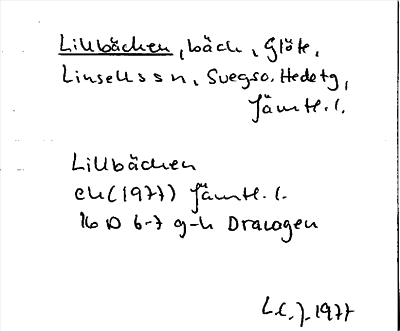 Lillbäcken, bäck, Glöte,
Linsells sn, Svegs tg,
Jämtl. l.
Lillbäcken
ek (1977) Jämtl. l.
16 D 6-7 g-h Dravagen
1977